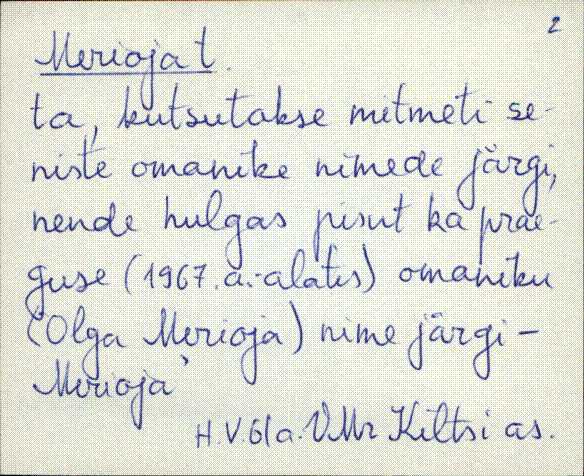 2
Merioja t.
ta, kutsutakse mitmeti se-
niste omanike nimede järgi,
nende hulgas pisut ka prae-
guse (1967. a.-alates) omaniku
(Olga Merioja) nime järgi –
Merioja`
H.V.61a. VMr Kiltsi as.